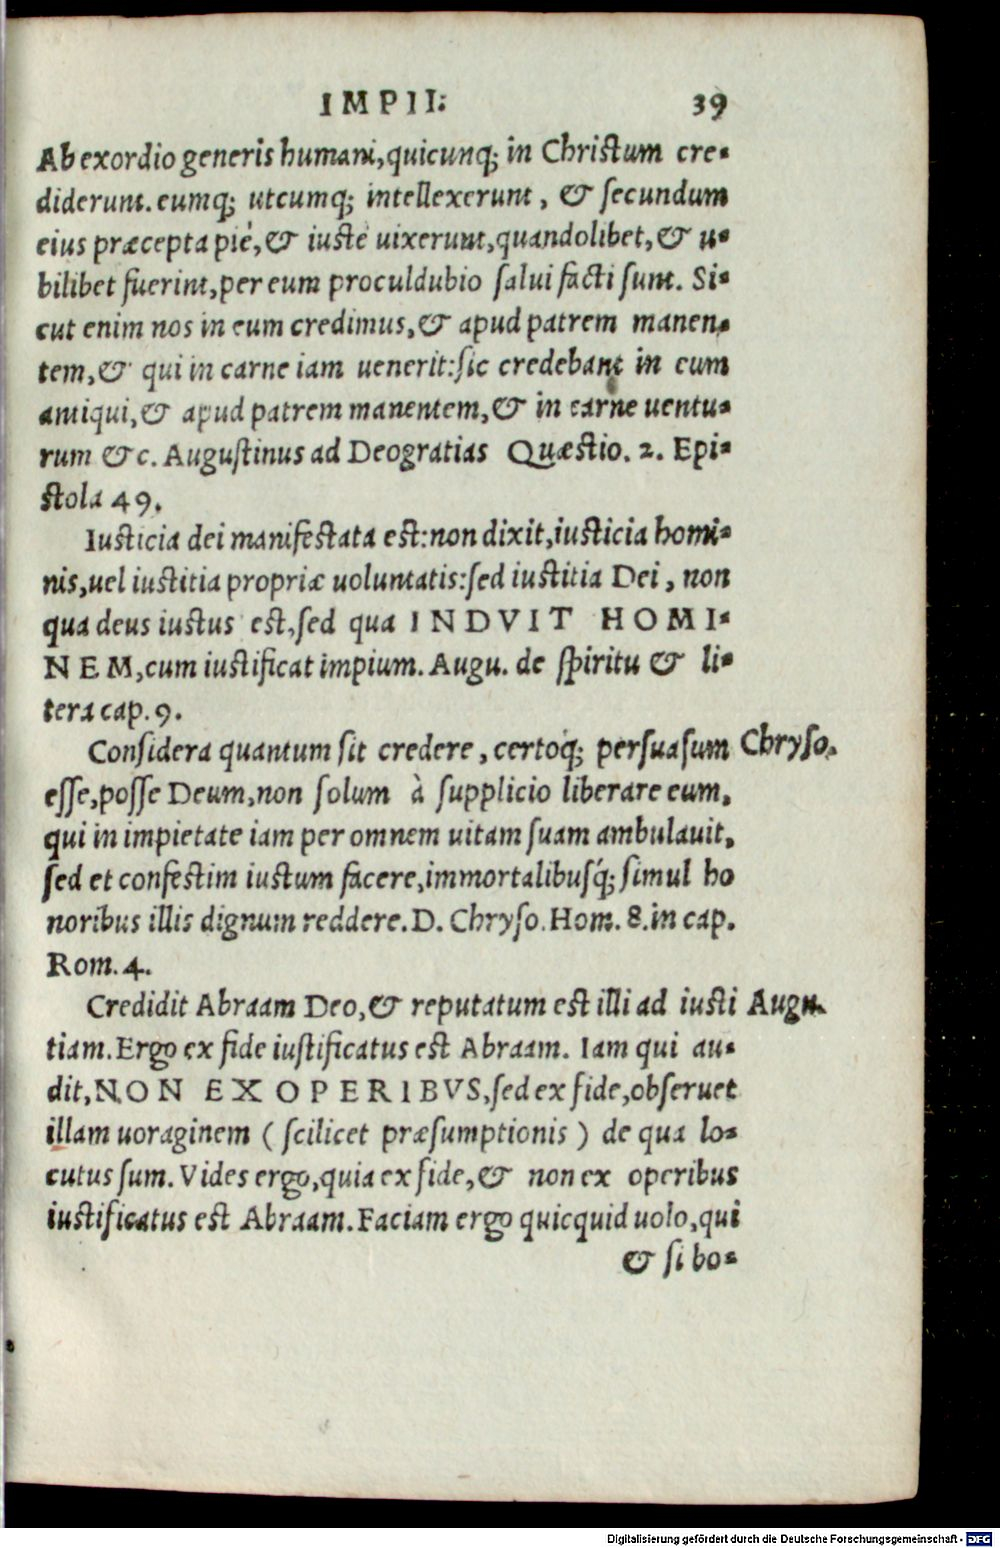 IMPII. 39
Ab exordio generis humani, quicunq; in Christum cre-
diderunt. eumq; utcumq; intellexerunt, & secundum
eius præcepta piè, & iustè uixerunt, quandolibet, & u-
bilibet fuerint, per eum proculdubio salui facti sunt. Si-
cut enim nos in eum credimus, & apud patrem manen-
tem, & qui in carne iam uenerit: sic credebant in eum
antiqui, & apud patrem manentem, & in carne uentu-
rum &c. Augustinus ad Deogratias Quæstio. 2. Epi-
stola 49.
Iusticia dei manifestata est: non dixit, iusticia homi-
nis, uel iustitia propriæ uoluntatis: sed iustitia Dei, non
qua deus iustus est, sed qua INDVIT HOMI-
NEM, cum iustificat impium. Augu. de spiritu & li-
tera cap. 9.
Considera quantum sit credere, certoq́; persuasum Chryso.
esse, posse Deum, non solum à supplicio liberare eum,
qui in impietate iam per omnem uitam suam ambulauit,
sed et confestim iustum facere, immortalibusq́; simul ho
noribus illis dignum reddere. D. Chryso. Hom. 8. in cap.
Rom. 4.
Credidit Abraam Deo, & reputatum est illi ad iusti Augu.
tiam. Ergo ex fide iustificatus est Abraam. Iam qui au-
dit, NON EX OPERIBVS, sed ex fide, obseruet
illam uoraginem ( scilicet præsumptionis ) de qua lo-
cutus sum. Vides ergo, quia ex fide, & non ex operibus
iustificatus est Abraam. Faciam ergo quicquid uolo, qui
& si bo-
Digitalisierung gefördert durch die Deutsche Forschungsgemeinschaft - DFG